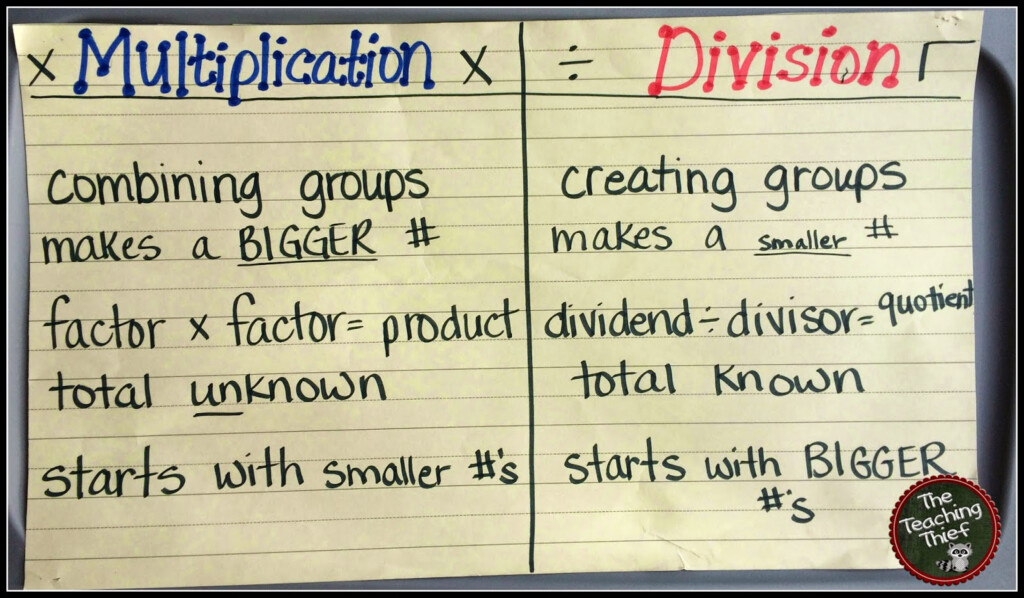 x Multiplication x
combining groups
makes a BIGGER #
factor x factor = product
total unknown
starts with smaller #'s
÷ Division
creating groups
makes a smaller #
dividend ÷ divisor = quotient
total known
starts with BIGGER
#'s
The
Teaching
Thief